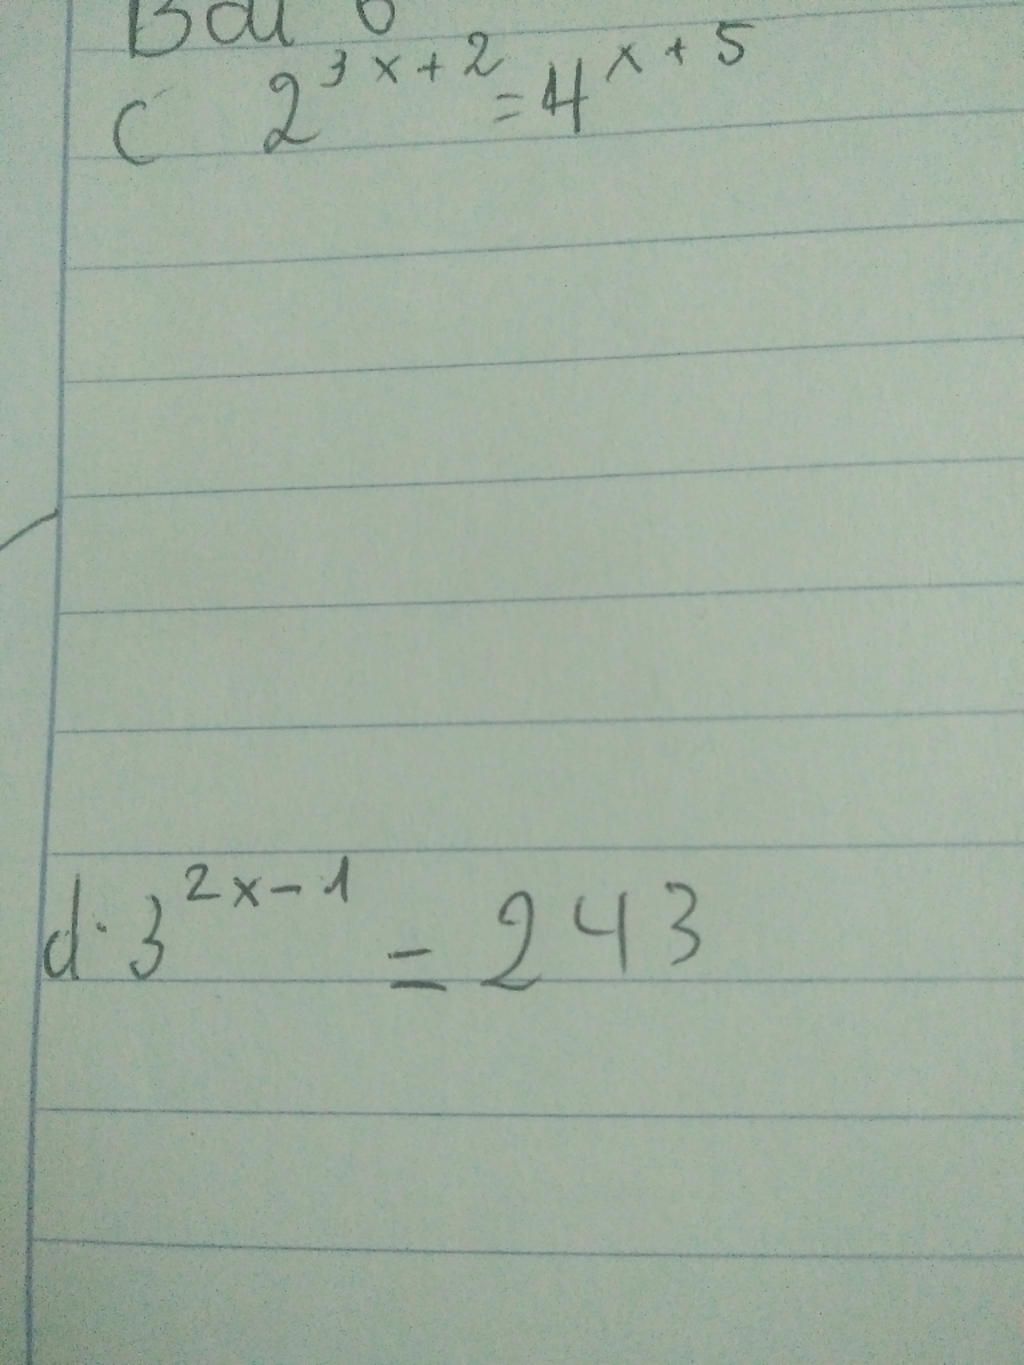 Bài 6
c 2^{3x+2} = 4^{x+5}
d. 3^{2x-1} = 243